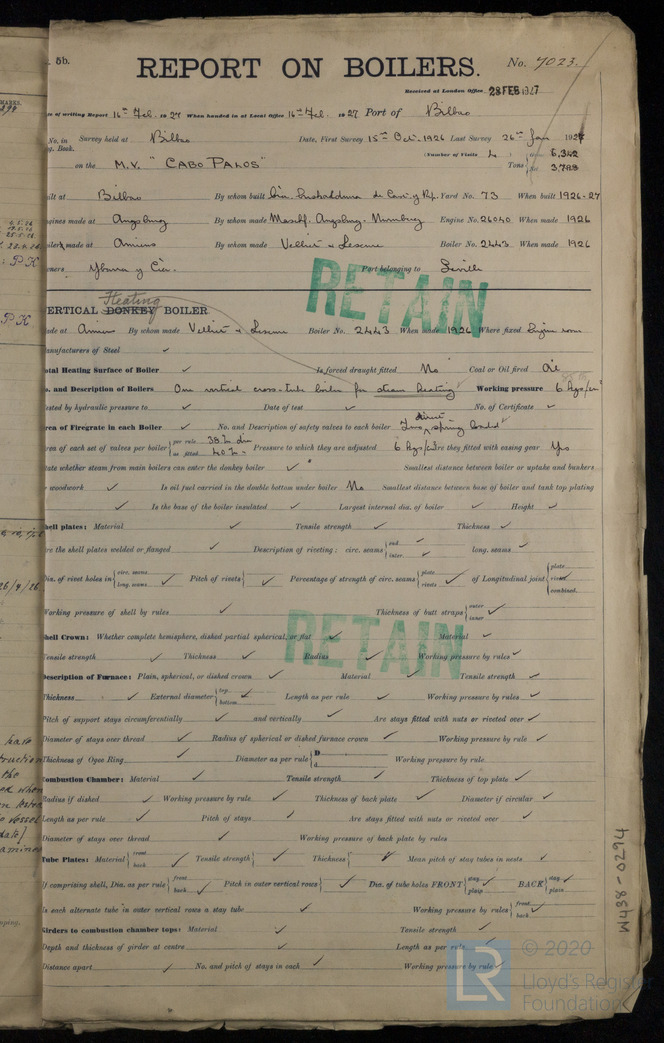 5b.
REPORT ON BOILERS.
No. 7023.
Received at London Office 28 FEB 1927
of writing Report 16th Feb. 1927 When handed in at Local Office 16th Feb. 1927 Port of Bilbao
No. in Survey held at Bilbao Date, First Survey 15th Oct. 1926 Last Survey 26th Jan 1927
Book. (Number of Visits 4
on the M.V. "CABO PALOS" Tons Gross 6,342 Net 3,798
at Bilbao By whom built Yard No. 73 When built 1926-27
made at Augsburg By whom made Maschf. Augsburg-Nurnburg Engine No. 26040 When made 1926
made at Amiens By whom made Velliet & Lescure Boiler No. 2443 When made 1926
Ybarra y Cia. Port belonging to Seville
RETAIN
Heating
VERTICAL DONKEY BOILER
made at Amiens By whom made Velliet & Lescure Boiler No. 2443 When made 1926 Where fixed Engine room
Manufacturers of Steel ✓
Total Heating Surface of Boiler ✓ Is forced draught fitted No Coal or Oil fired Oil
No. and Description of Boilers One vertical cross-tube boiler for steam heating Working pressure 6 kgs/cm²
Tested by hydraulic pressure to ✓ Date of test ✓ No. of Certificate ✓
Area of Firegrate in each Boiler ✓ No. and Description of safety valves to each boiler Two direct spring loaded
Area of each set of valves per boiler { per rule as fitted Pressure to which they are adjusted 6 kgs/cm² Are they fitted with easing gear Yes
State whether steam from main boilers can enter the donkey boiler ✓ Smallest distance between boiler or uptake and bunkers
or woodwork ✓ Is oil fuel carried in the double bottom under boiler No Smallest distance between base of boiler and tank top plating
✓ Is the base of the boiler insulated ✓ Largest internal dia. of boiler ✓ Height ✓
Shell plates: Material ✓ Tensile strength ✓ Thickness ✓
Are the shell plates welded or flanged ✓ Description of riveting: circ. seams { end ✓ inter. ✓ long. seams ✓
Dia. of rivet holes in { circ. seams long. seams ✓ Pitch of rivets { ✓ Percentage of strength of circ. seams { plate rivets ✓ of Longitudinal joint { plate rivets combined.
Working pressure of shell by rules ✓ Thickness of butt straps { outer inner ✓
RETAIN
Shell Crown: Whether complete hemisphere, dished partial spherical, or flat ✓ Material ✓
Tensile strength ✓ Thickness ✓ Radius ✓ Working pressure by rules ✓
Description of Furnace: Plain, spherical, or dished crown ✓ Material ✓ Tensile strength ✓
Thickness ✓ External diameter { top bottom ✓ Length as per rule ✓ Working pressure by rules ✓
Pitch of support stays circumferentially ✓ and vertically ✓ Are stays fitted with nuts or riveted over ✓
Diameter of stays over thread ✓ Radius of spherical or dished furnace crown ✓ Working pressure by rule ✓
Thickness of Ogee Ring ✓ Diameter as per rule { D d Working pressure by rule
Combustion Chamber: Material ✓ Tensile strength ✓ Thickness of top plate ✓
Radius if dished ✓ Working pressure by rule ✓ Thickness of back plate ✓ Diameter if circular ✓
Length as per rule ✓ Pitch of stays ✓ Are stays fitted with nuts or riveted over ✓
Diameter of stays over thread ✓ Working pressure of back plate by rules ✓
Tube Plates: Material { front back ✓ Tensile strength { ✓ Thickness { ✓ Mean pitch of stay tubes in nests ✓
If comprising shell, Dia. as per rule { front back ✓ Pitch in outer vertical rows { ✓ Dia. of tube holes FRONT { stay plain ✓ BACK { stay plain ✓
Is each alternate tube in outer vertical rows a stay tube ✓ Working pressure by rules { front back ✓
Girders to combustion chamber tops: Material ✓ Tensile strength ✓
Depth and thickness of girder at centre ✓ Length as per rule ✓
Distance apart ✓ No. and pitch of stays in each ✓ Working pressure by rule ✓
W488-0294
LR
© 2020
Lloyd's Register
Foundation